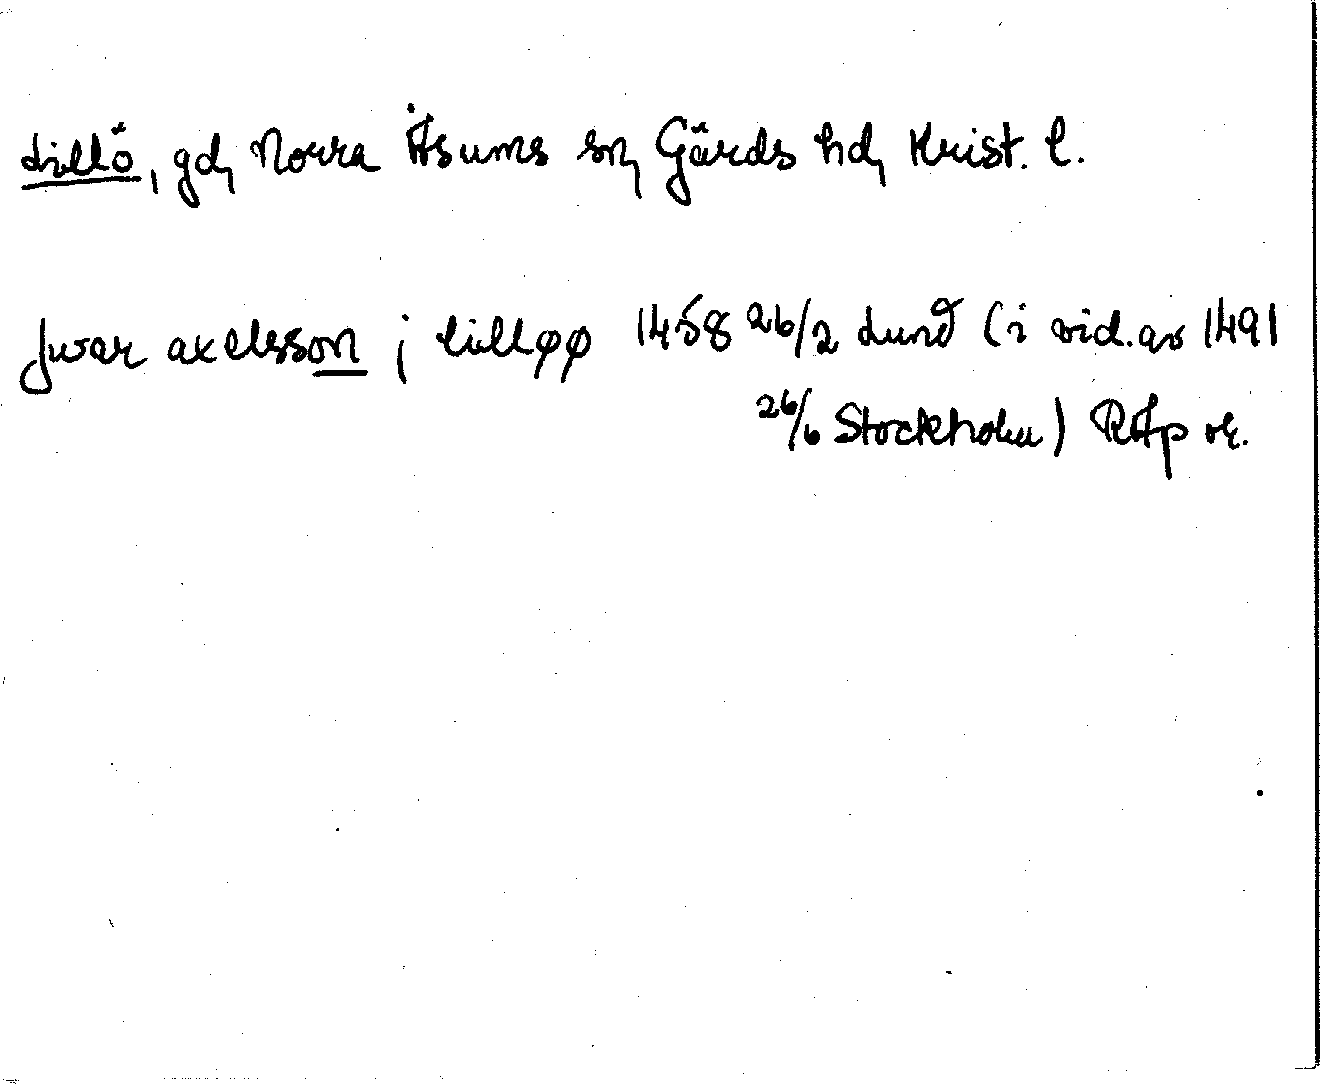 Lillö, gd, Norra Åsums sn, Gärds hd, Krist. l.
Jwar axelsson j lilløø 1458 26/2 Lund (i vid. av 1491
26/6 Stockholm) RAp or.